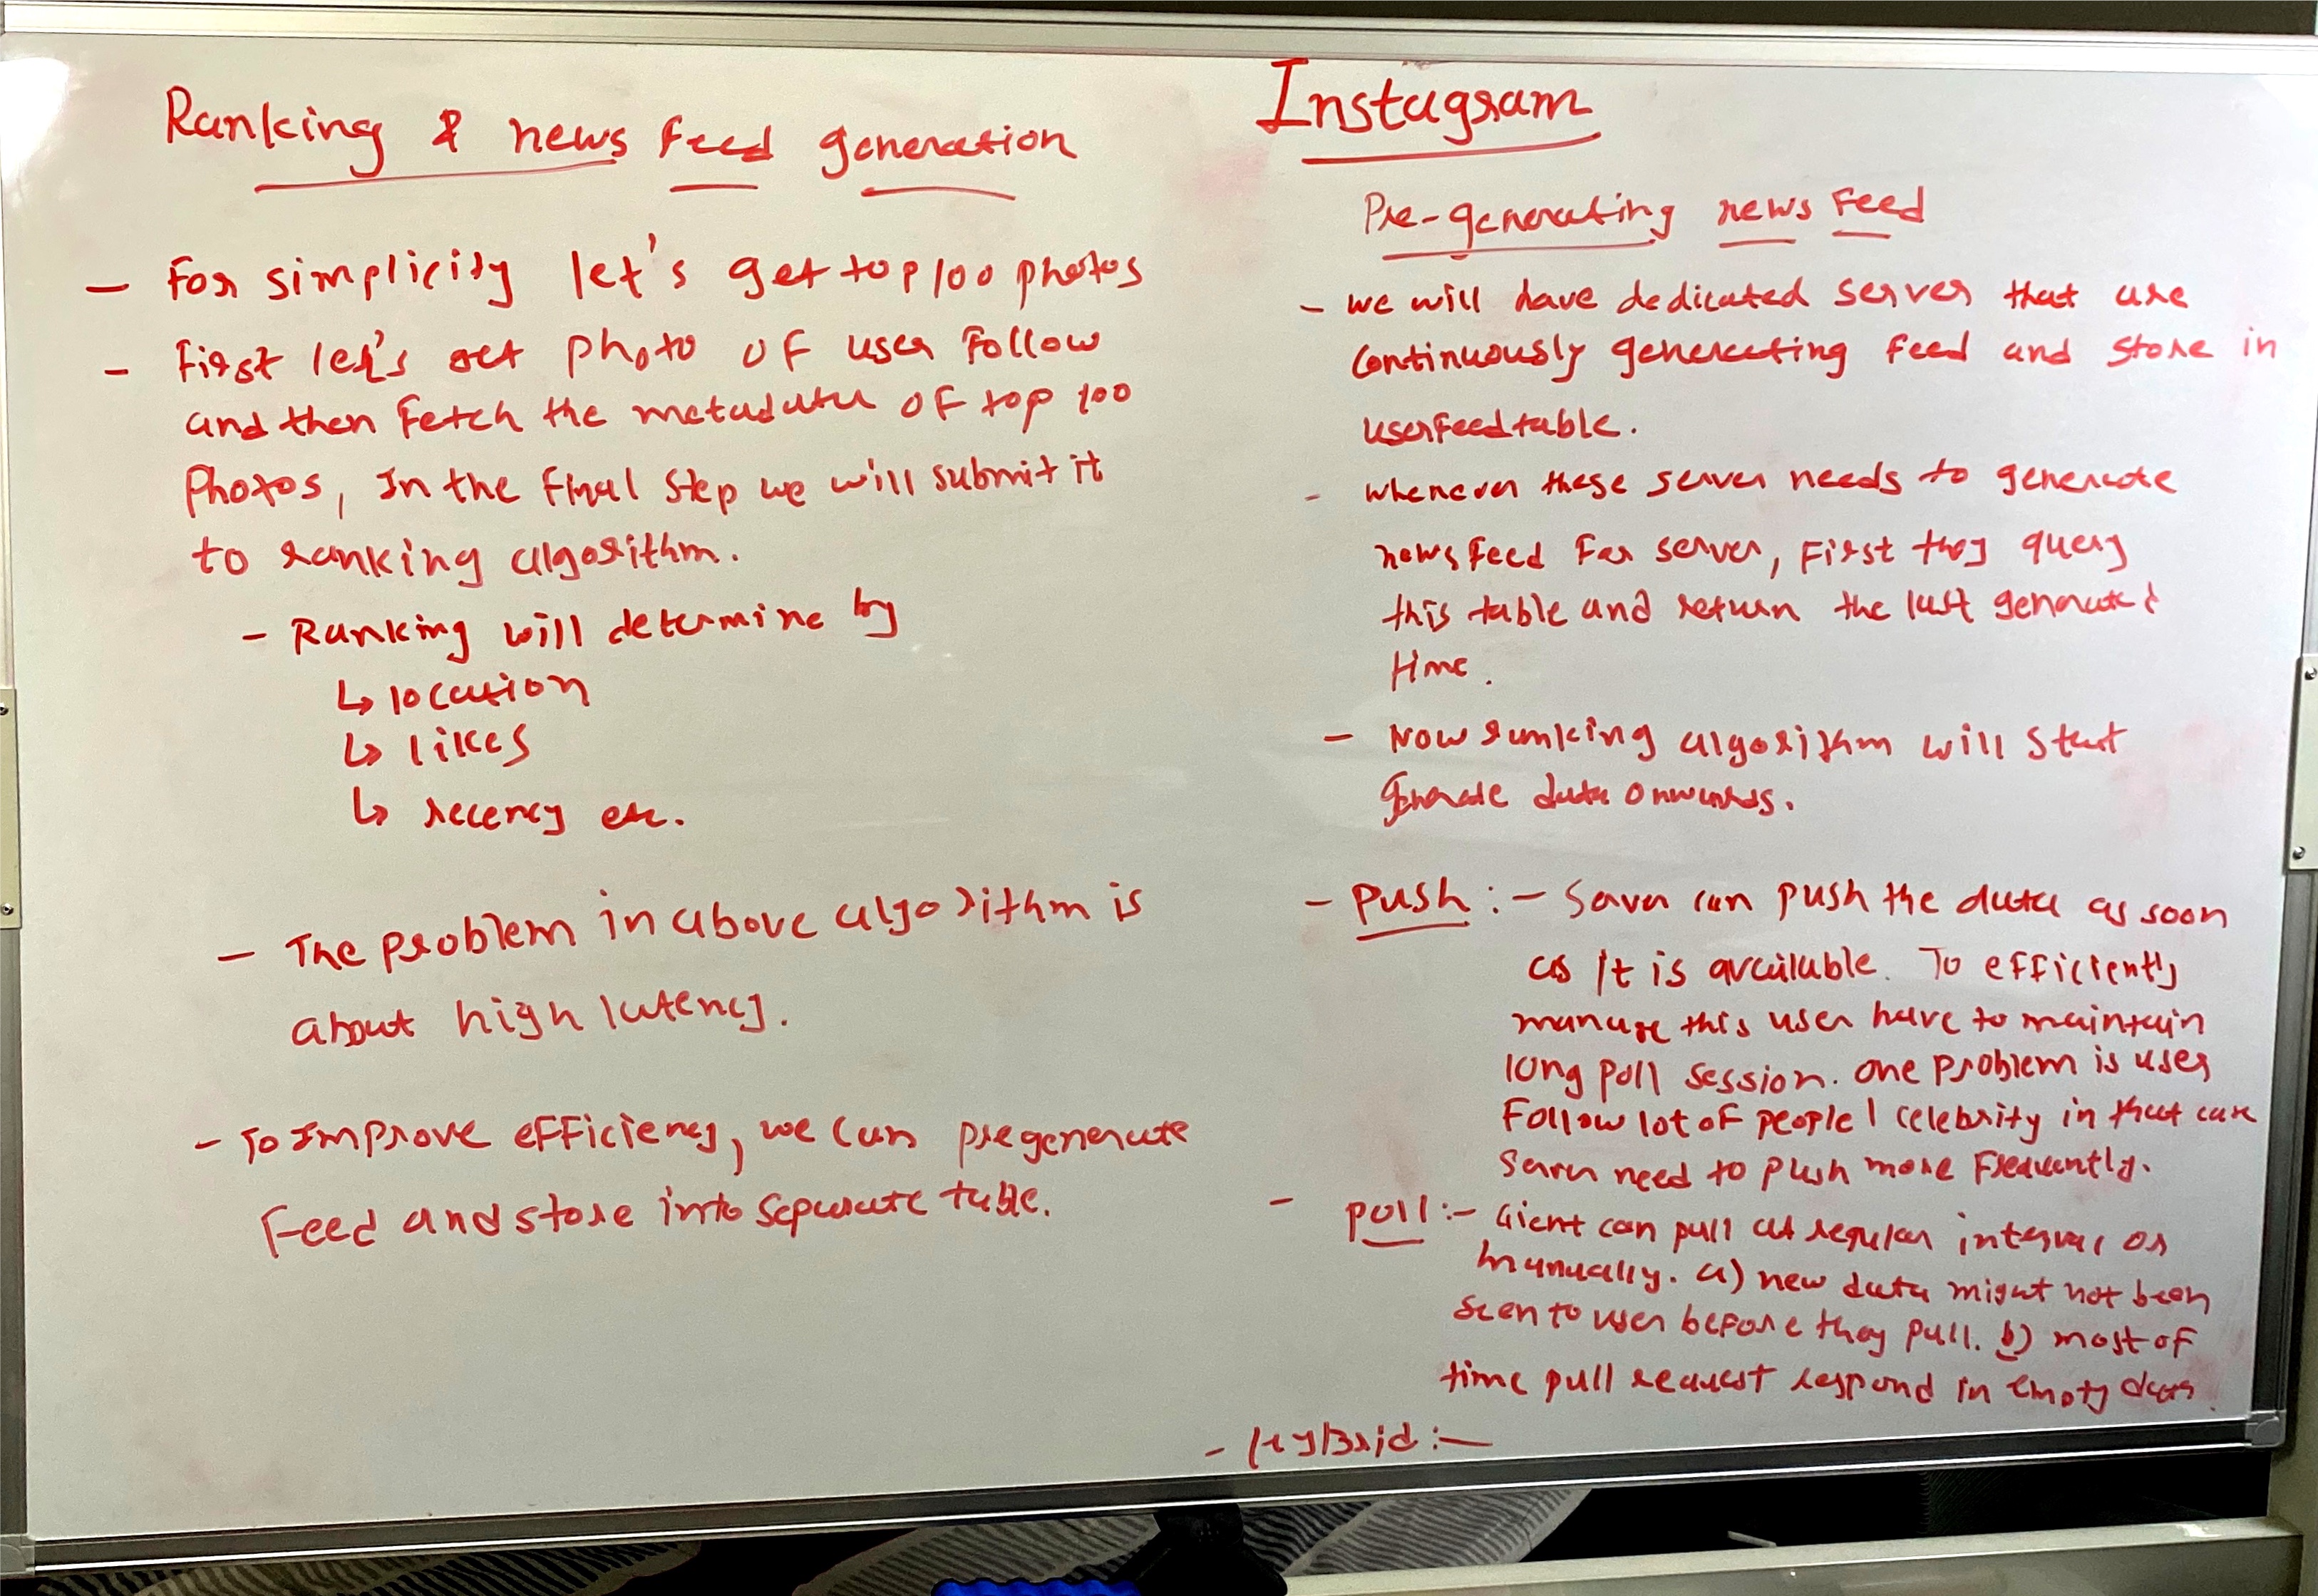 Ranking & news feed generation
- For simplicity let's get top 100 photos
- First let's get photo of user follow
and then fetch the metadata of top 100
photos, In the final step we will submit it
to ranking algorithm.
- Ranking will determine by
↳ location
↳ likes
↳ recency etc.
- The problem in above algorithm is
about high latency.
- To Improve efficiency, we can pregenerate
Feed and store into separate table.
Instagram
Pre-generating news Feed
- we will have dedicated server that are
continuously generating feed and store in
userfeedtable.
- whenever these server needs to generate
newsfeed for server, First they query
this table and return the last generated
time.
- Now ranking algorithm will start
generate data onwards.
- Push :- Server can push the data as soon
as it is available. To efficiently
manage this user have to maintain
long poll session. one problem is user
Follow lot of people / celebrity in that case
server need to push more frequently.
- Pull :- Client can pull at regular interval or
manually. a) new data might not been
seen to user before they pull. b) most of
time pull request respond in empty data.
- HyBrid :-